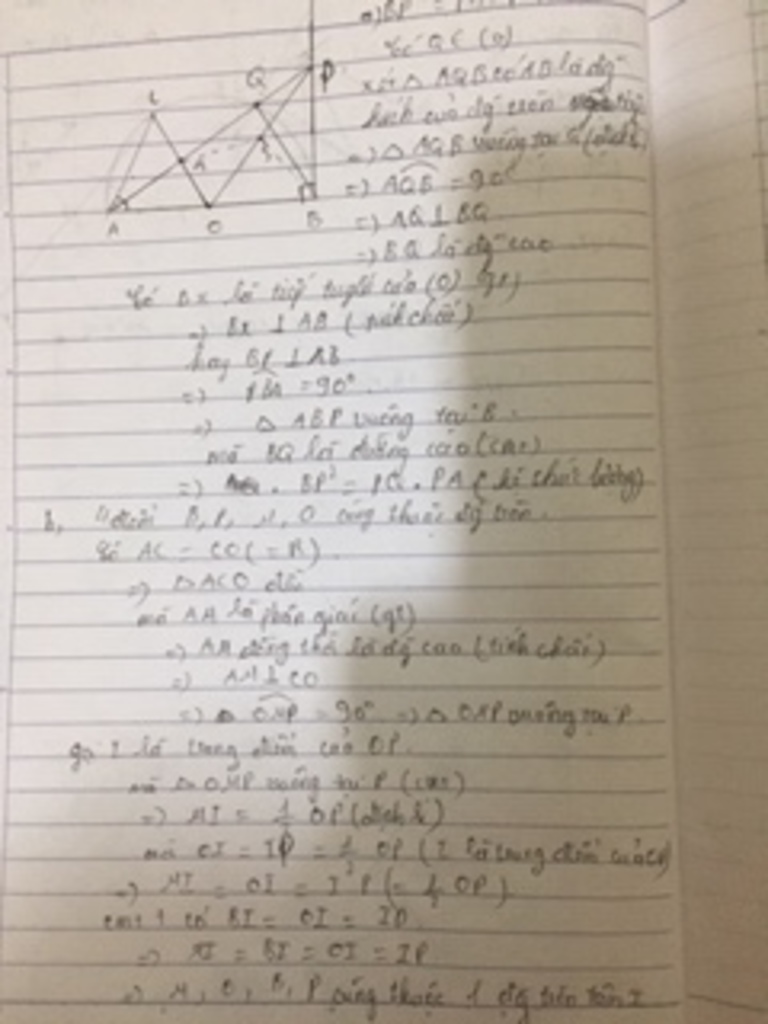 a) BP
Có Q ∈ (O)
xét △ AQB có AB là đg
kính của đg tròn
=> △ AQB vuông tại Q (định lí)
=> AQB = 90°
=> AQ ⊥ BQ
=> BQ là đg cao
C
Q
P
A
O
B
Có Bx là tiếp tuyến của (O) (gt)
=> Bx ⊥ AB (tính chất)
hay BP ⊥ AB
=> PBA = 90°
=> △ ABP vuông tại B.
mà BQ là đường cao (cmt)
=> BP² = PQ . PA (hệ thức lượng)
b, 4 điểm B, P, M, O cùng thuộc đg tròn.
Có AC = CO (= R)
=> △ ACO đều
mà AM là phân giác (gt)
=> AM đồng thời là đg cao (tính chất)
=> AM ⊥ CO
=> OMP = 90° => △ OMP vuông tại P.
gọi I là trung điểm của OP.
mà △ OMP vuông tại P (cmt)
=> MI = 1/2 OP (định lí)
mà OI = IP = 1/2 OP (I là trung điểm của OP)
=> MI = OI = IP (= 1/2 OP)
cmt có BI = OI = IP
=> MI = BI = OI = IP
=> M, O, B, P cùng thuộc 1 đg tròn tâm I